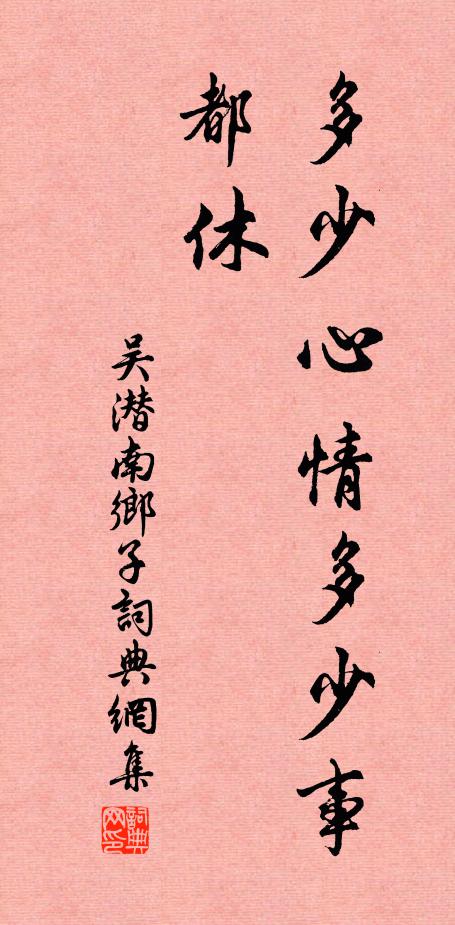 多少心情多少事
都休
吴潜南鄉子詞典網集
詞典网印